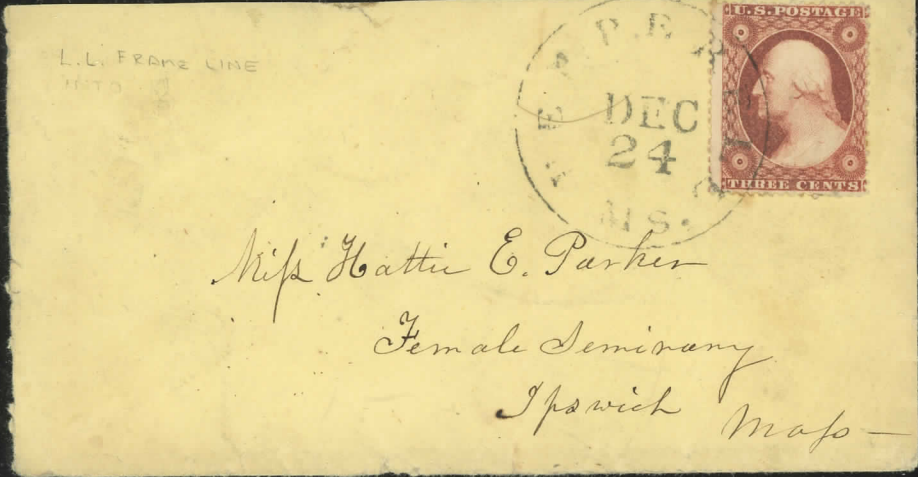 L.L. FRANZ LINE
INTO
U.S. POSTAGE
DEC
24
MS.
THREE CENTS
Miſs Hattie E. Parker
Female Seminary
Ipswich Maſs —